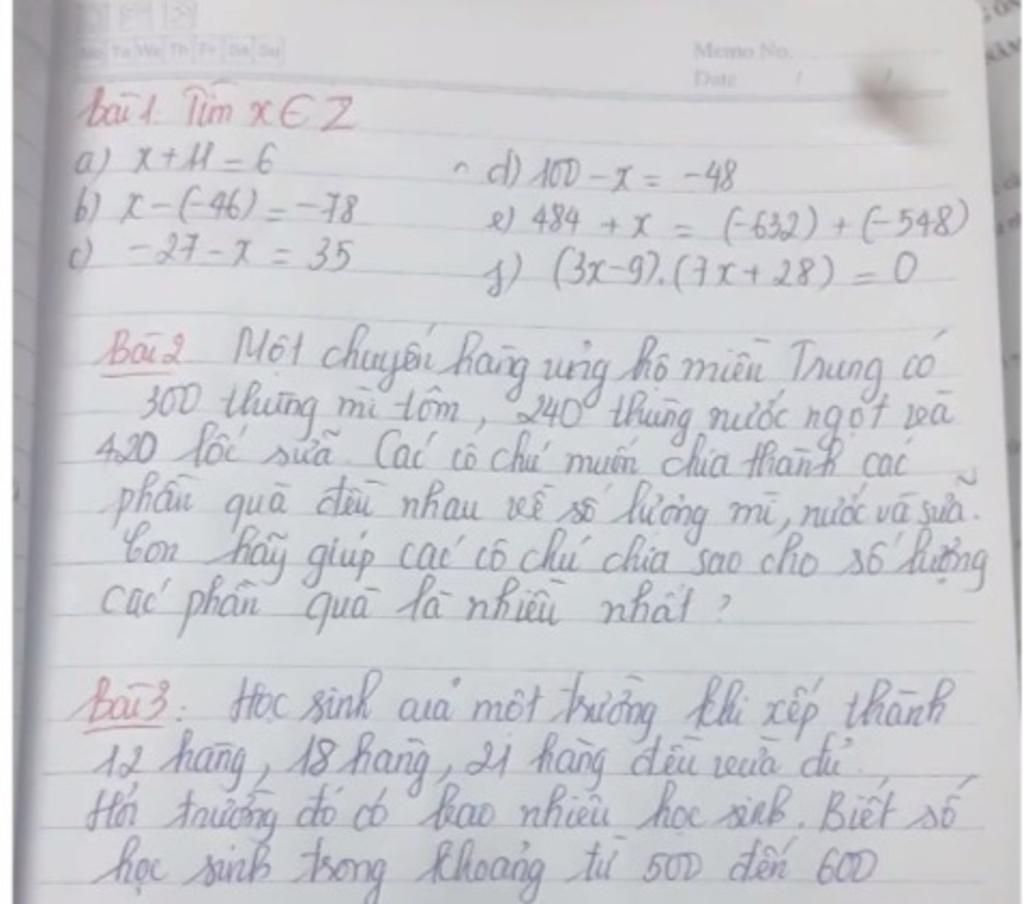 Mo Tu We Th Fr Sa Su
Memo No.
Date / /
bài 1. Tìm x ∈ Z
a) x + 11 = 6
b) x - (-46) = -78
c) -27 - x = 35
d) 100 - x = -48
e) 484 + x = (-632) + (-548)
f) (3x-9).(7x+28) = 0
Bài 2 Một chuyến hàng ủng hộ miền Trung có
300 thùng mì tôm, 240 thùng nước ngọt và
420 lốc sữa. Các cô chú muốn chia thành các
phần quà đều nhau về số lượng mì, nước và sữa.
Con hãy giúp các cô chú chia sao cho số lượng
các phần quà là nhiều nhất?
Bài 3: Học sinh của một trường khi xếp thành
12 hàng, 18 hàng, 21 hàng đều vừa đủ.
Hỏi trường đó có bao nhiêu học sinh. Biết số
học sinh trong khoảng từ 500 đến 600